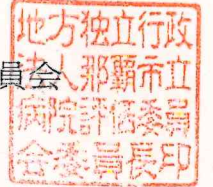 員会
地方独立行政
法人那覇市立
病院評価委員
会委員長印